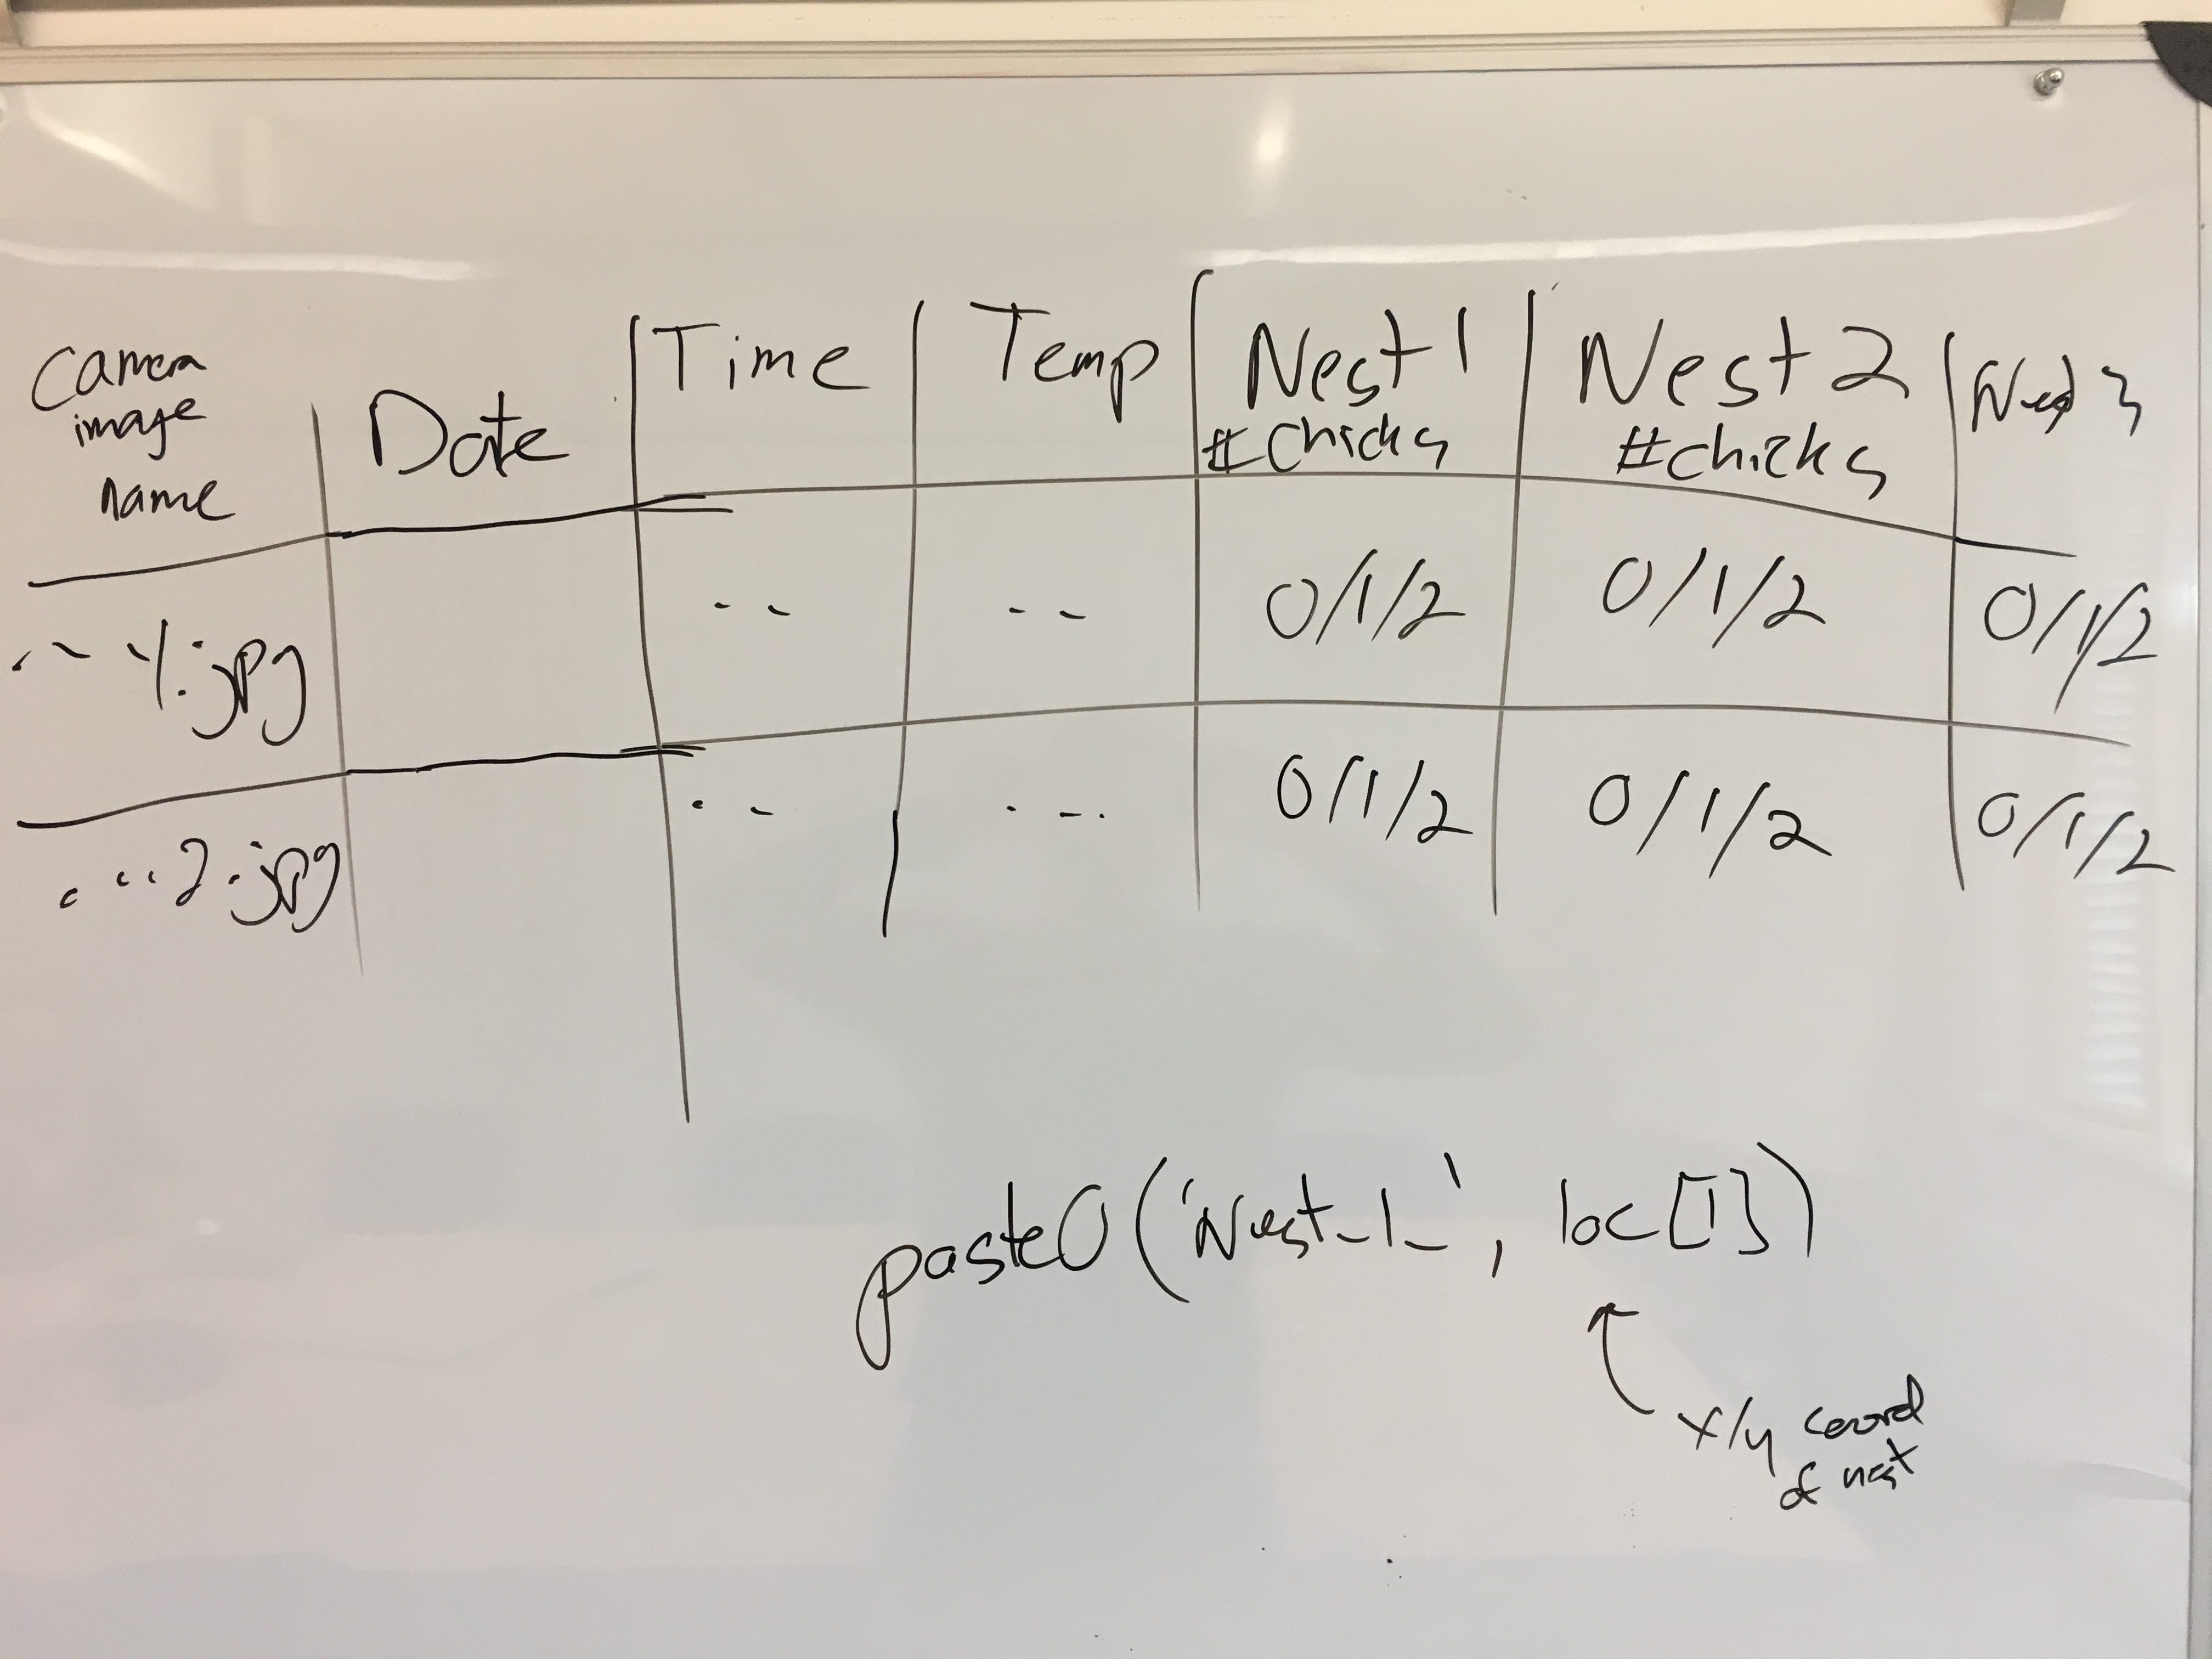 Camera image name | Date | Time | Temp | Nest 1 #chicks | Nest 2 #chicks | Nest 3
-- 1.jpg | | -- | -- | 0/1/2 | 0/1/2 | 0/1/2
....2.jpg | | -- | --. | 0/1/2 | 0/1/2 | 0/1/2
paste0('Nest_1_', loc[1])
x/y coord
of nest